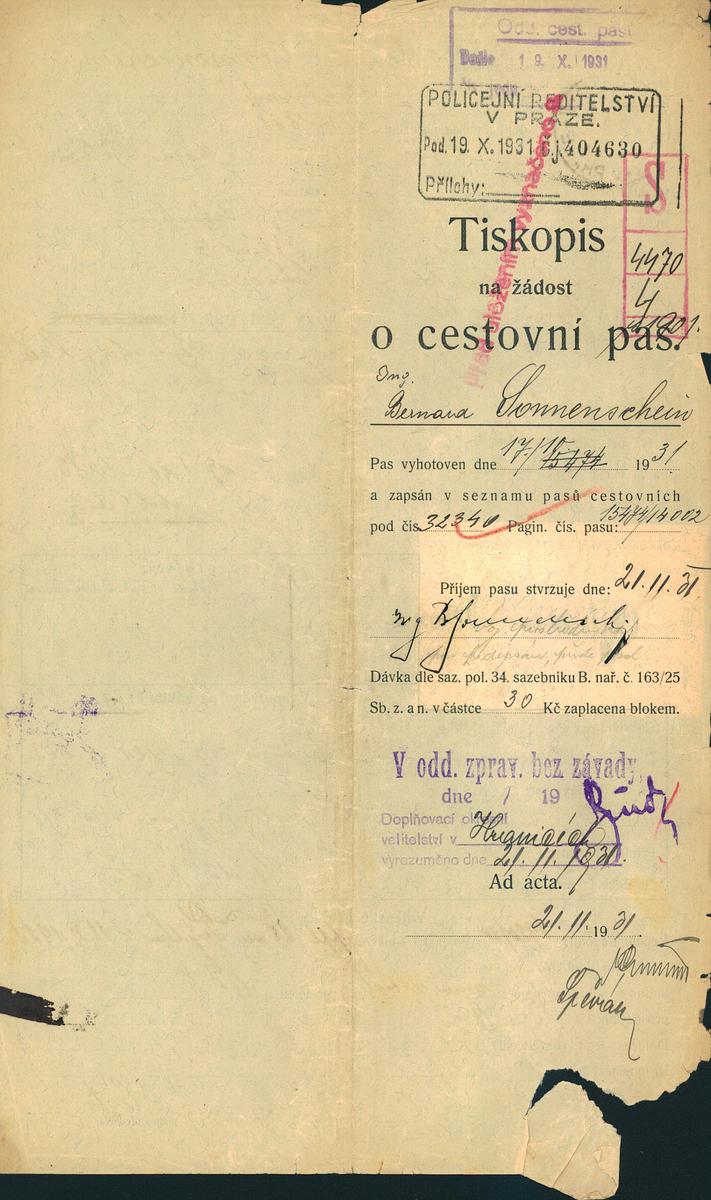 Odd. cest. pasů
Došlo 19. X. 1931
POLICEJNÍ ŘEDITELSTVÍ
V PRAZE.
Pod. 19. X. 1931 Čj. 404630
Přílohy:
S
2
4470
4
Před uložením vyznačeno
Tiskopis
na žádost
o cestovní pas.
Ing.
Bernard Sonnenschein
Pas vyhotoven dne 17/10 15474 1931
a zapsán v seznamu pasů cestovních
pod čís. 32340 Pagin. čís. pasu: 15474/14002
Příjem pasu stvrzuje dne: 21.11.31
Dávka dle saz. pol. 34. sazebníku B. nař. č. 163/25
Sb. z. a n. v částce 30 Kč zaplacena blokem.
V odd. zprav. bez závady,
dne / 19
Doplňovací okresní
velitelství v
vyrozuměno dne 21.11.1931.
Ad acta.
21.11. 1931.